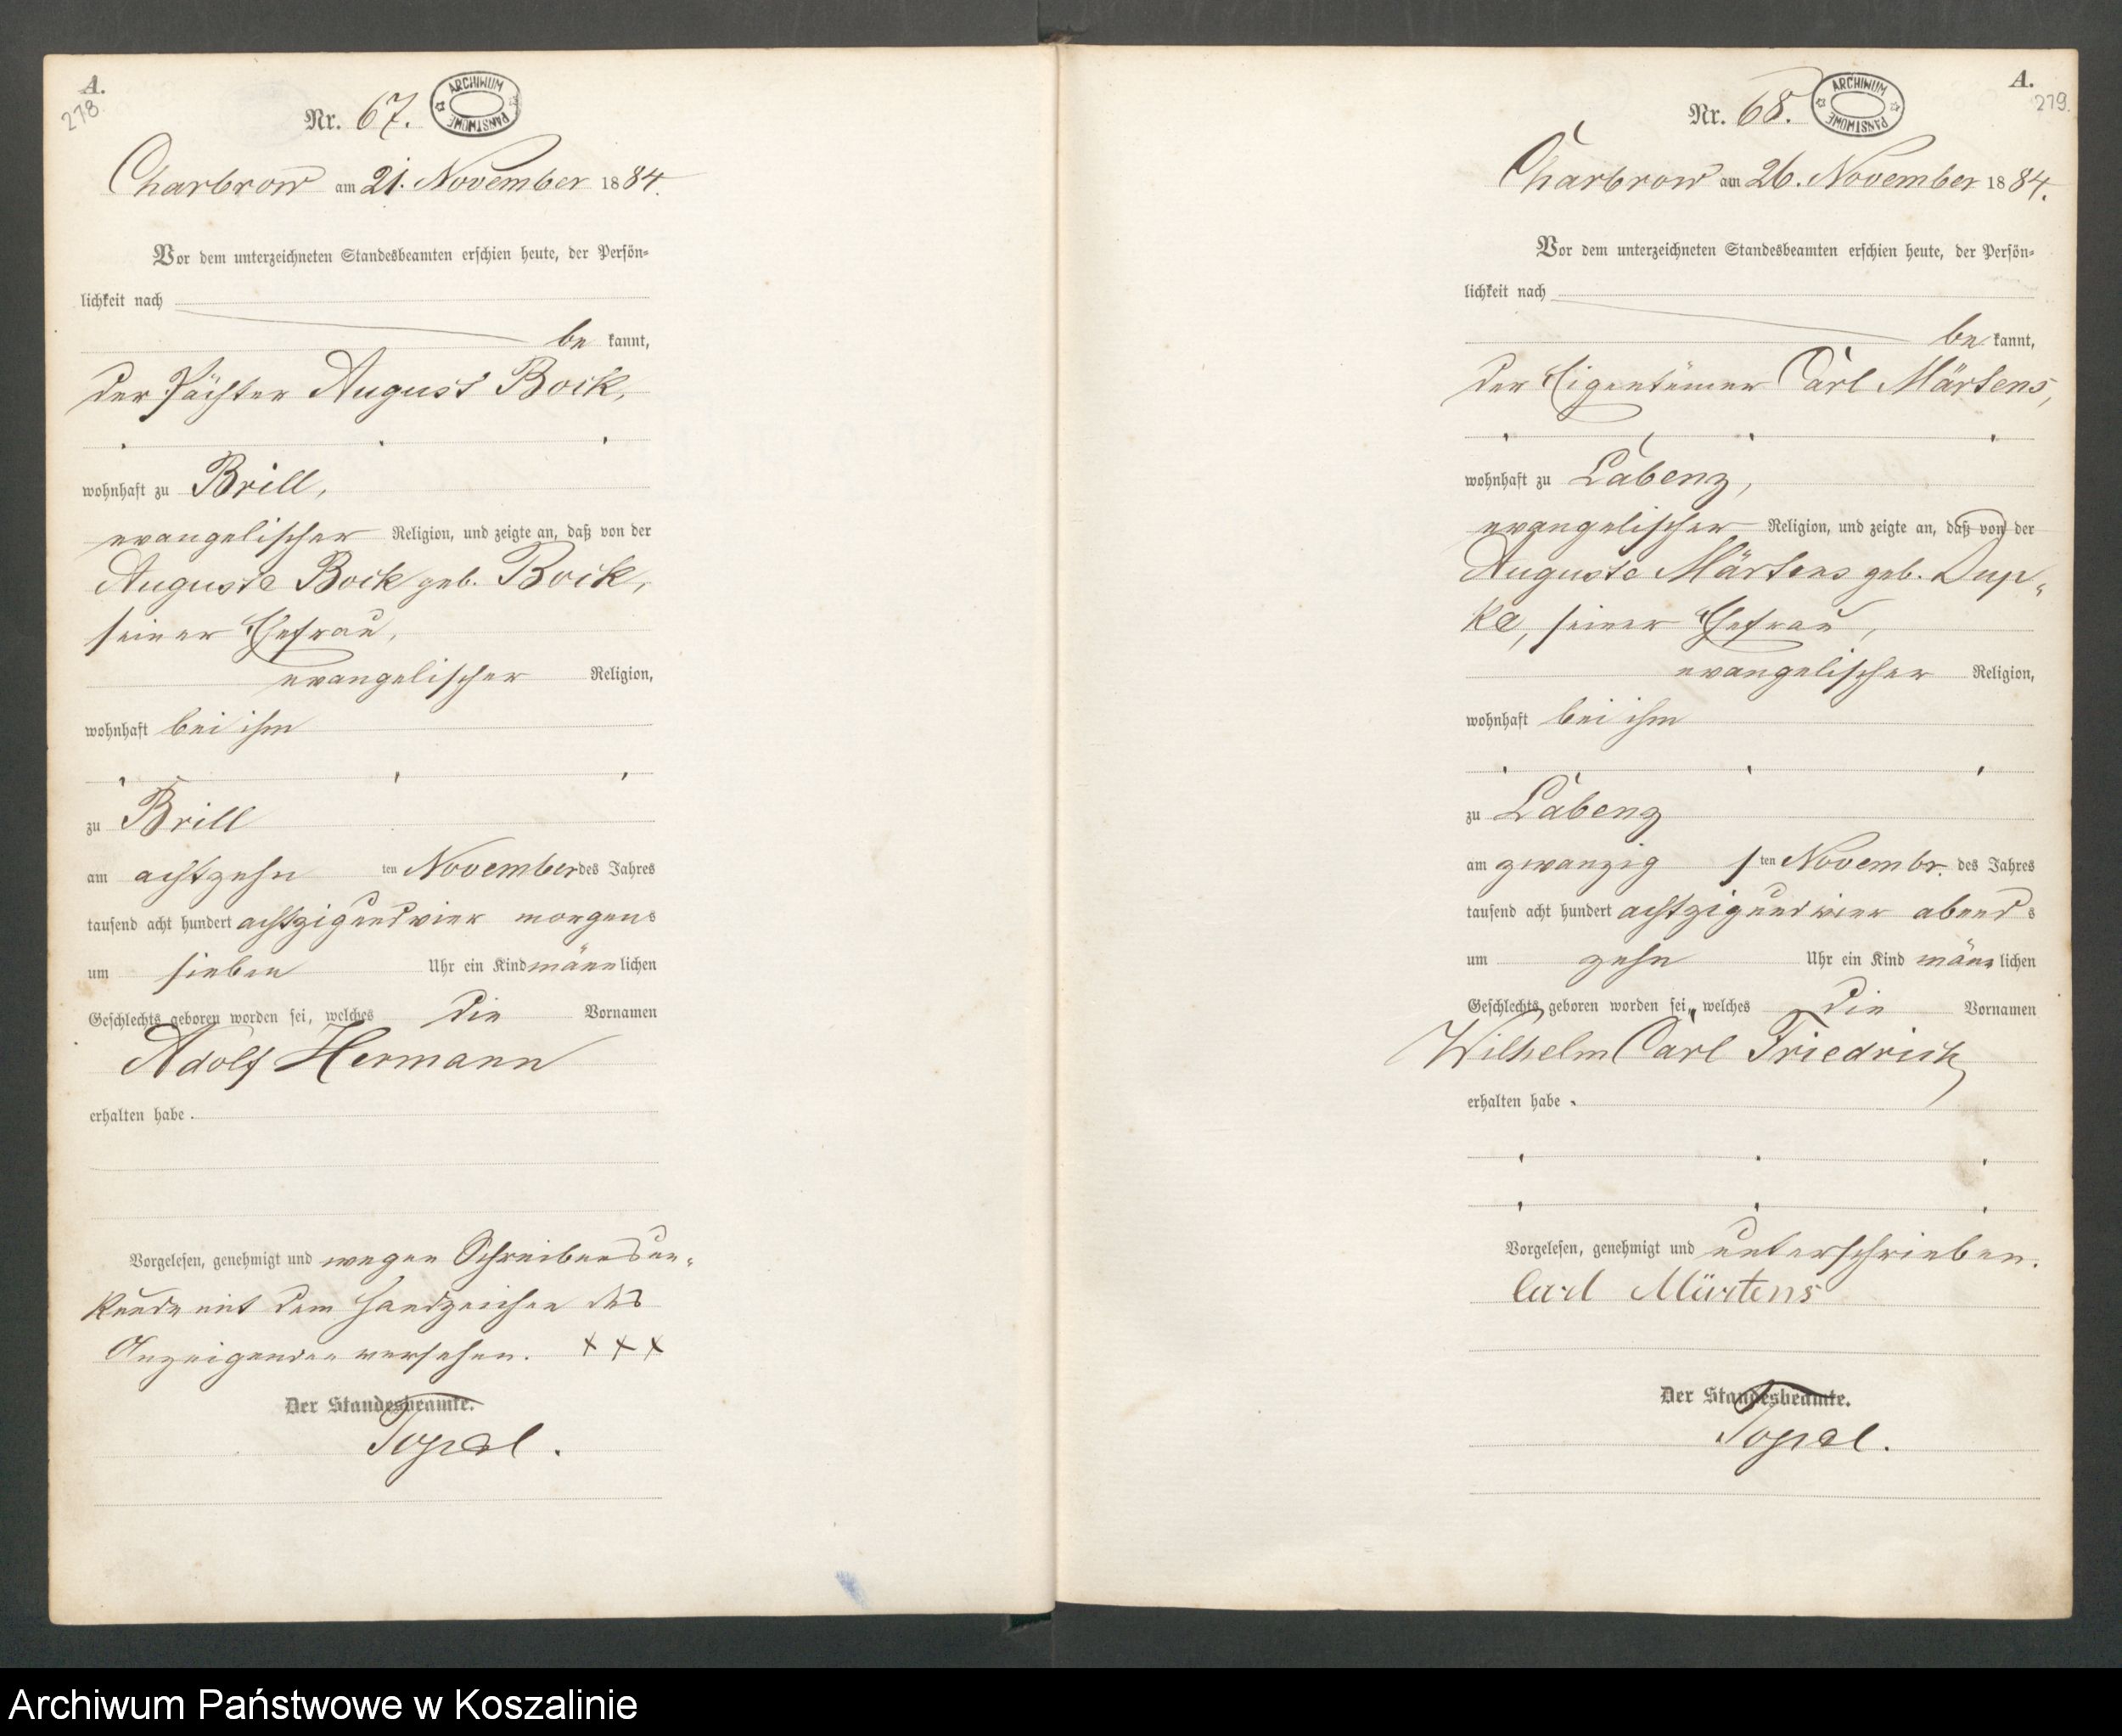 A.
278
Nr. 67.
ARCHIWUM PAŃSTWOWE
Charbrow am 21. November 1884.
Vor dem unterzeichneten Standesbeamten erschien heute, der Persön-
lichkeit nach
be kannt,
der Pächter August Bock,
wohnhaft zu Brill,
evangelischer Religion, und zeigte an, daß von der
Auguste Bock geb. Bock,
seiner Ehefrau,
evangelischer Religion,
wohnhaft bei ihm
zu Brill
am achtzehn ten November des Jahres
tausend acht hundert achtzigundvier morgens
um sieben Uhr ein Kind männlichen
Geschlechts geboren worden sei, welches die Vornamen
Adolf Hermann
erhalten habe.
Vorgelesen, genehmigt und wegen Schreibensun-
kunde mit dem Handzeichen des
Anzeigenden versehen. XXX
Der Standesbeamte.
Topel.
A.
279.
Nr. 68.
ARCHIWUM PAŃSTWOWE
Charbrow am 26. November 1884.
Vor dem unterzeichneten Standesbeamten erschien heute, der Persön-
lichkeit nach
be kannt,
der Eigentümer Carl Märtens,
wohnhaft zu Labenz,
evangelischer Religion, und zeigte an, daß von der
Auguste Märtens geb. Dup-
ke, seiner Ehefrau,
evangelischer Religion,
wohnhaft bei ihm
zu Labenz
am zwanzig sten Novembr. des Jahres
tausend acht hundert achtzigundvier abends
um zehn Uhr ein Kind männlichen
Geschlechts geboren worden sei, welches die Vornamen
Wilhelm Carl Friedrich
erhalten habe.
Vorgelesen, genehmigt und unterschrieben.
Carl Märtens
Der Standesbeamte.
Topel.
Archiwum Państwowe w Koszalinie